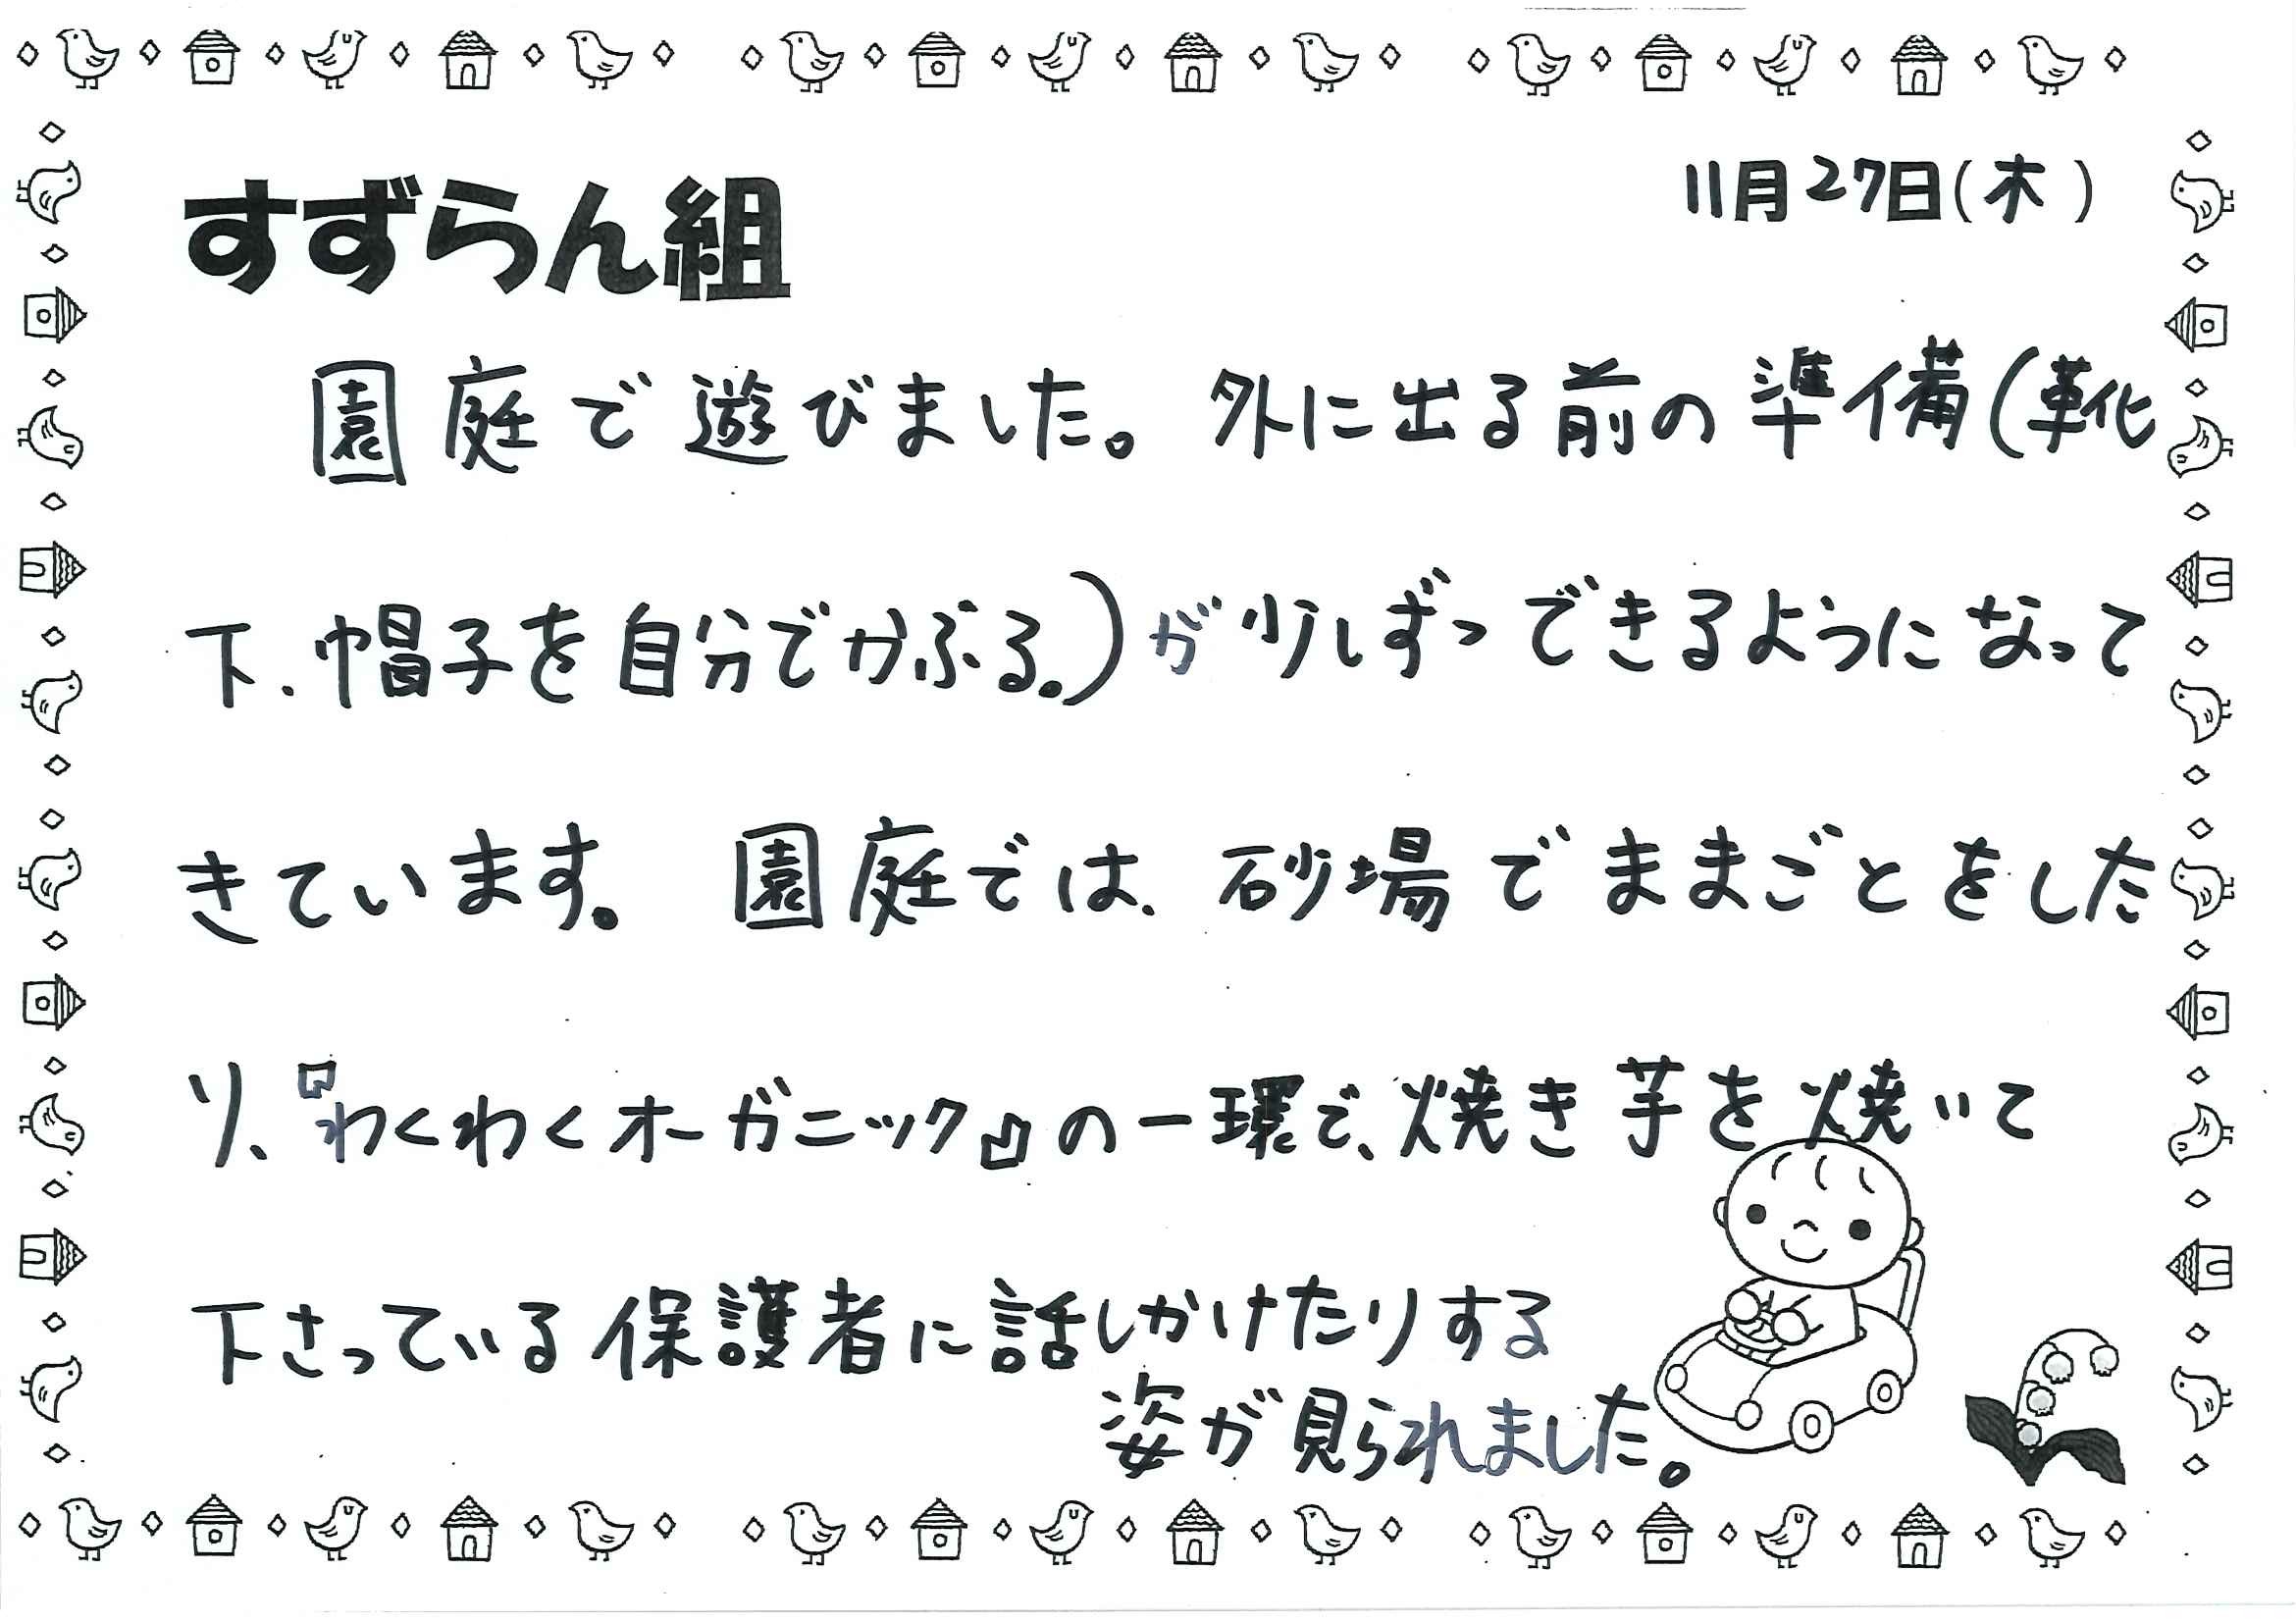 すずらん組
11月27日(木)
園庭で遊びました。外に出る前の準備(靴
下、帽子を自分でかぶる。)が少しずつできるようになって
きています。園庭では、砂場でままごとをした
り、『わくわくオーガニック』の一環で、焼き芋を焼いて
下さっている保護者に話しかけたりする
姿が見られました。